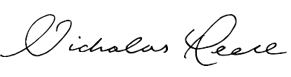 Nicholas Reece